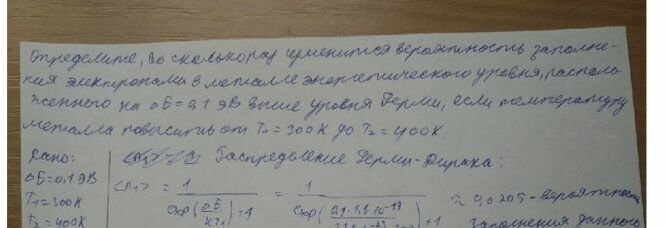 Определите, во сколько раз изменится вероятность заполне-
ния электронами в металле энергетического уровня, распола-
женного на ΔE=0,1 эВ выше уровня Ферми, если температуру
металла повысить от T₁=300К до T₂=400К.
Дано: Распределение Ферми-Дирака:
ΔE=0,1 эВ
T₁=300К
T₂=400К
<n₁> = 1/(exp(ΔE/kT₁)+1) = 1/(exp(0,1·1,6·10⁻¹⁹/)+1) ≈ 0,0205 - вероятность
заполнения данного